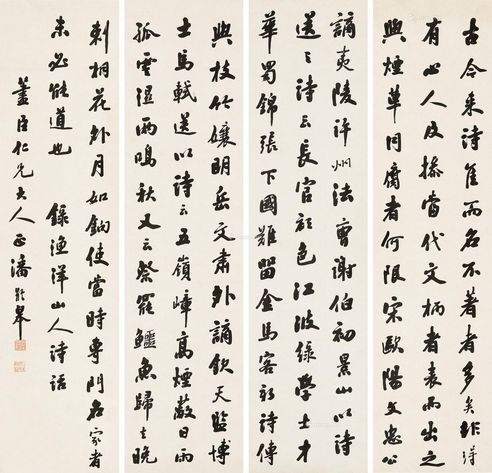 古今來詩佳而名不著者多矣非得
有心人及操當代文柄者表而出之
與煙草同腐者何限宋歐陽文忠公
謫夷陵許州法曹謝伯初景山以詩
送之詩云長官衫色江波綠學士才
華蜀錦張下國難留金馬客新詩傳
與枝竹孃明岳文肅外謫欽天監博
士馬軾送以詩云五嶺嶂高煙蔽日雨
孤雲濕雨鳴秋又云祭罷鱷魚歸去晚
刺桐花外月如鈎使當時專門名家者
未必能道也 錄漁洋山人詩話
藎臣仁兄大人正潘齡皋